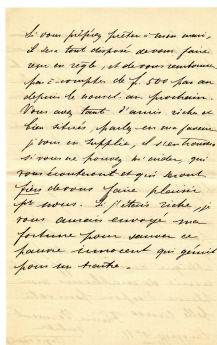 Si vous préférez prêter à mon mari,
il sera tout disposé de vous faire
reçu en règle, et de vous rembourser
par à-comptes de f. 500 par an
depuis le nouvel an prochain.
Vous avez tant d'amis riches et
bien situés, parlez-en en sa faveur,
je vous en supplie, il s'en trouvera
si vous ne pouvez m'aider, qui
vous écouteront et qui seront
fiers de vous faire plaisir
pr nous. Si j'étais riche, je
vous aurais envoyé ma
fortune pour sauver ce
pauvre innocent qui gémit
pour un traître.